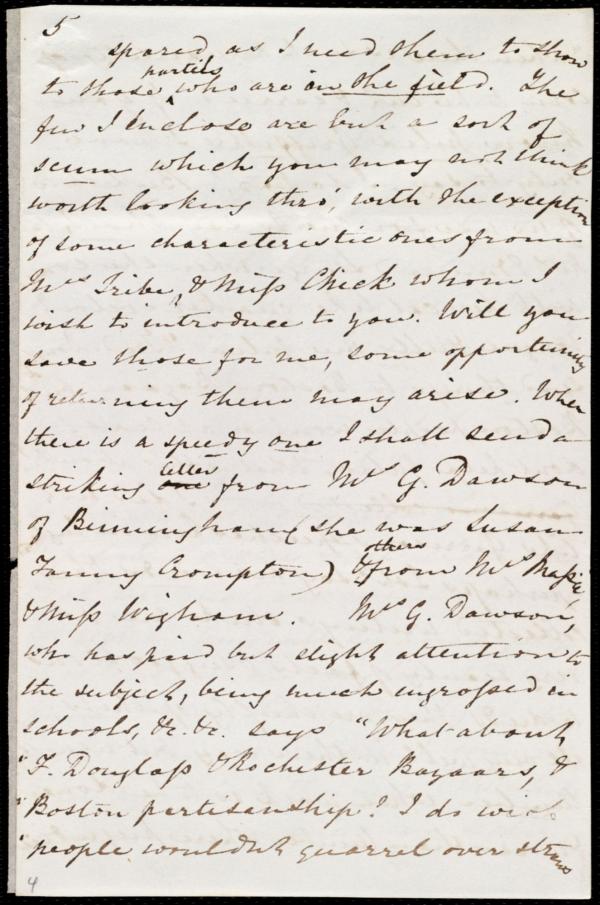 5
spared, as I need them to show
to those parties who are in the field. The
few I enclose are but a sort of
scum which you may not think
worth looking thro', with the exception
of some characteristic ones from
Mrs Tribe, & Miss Check whom I
wish to introduce to you. Will you
save those for me, some opportunity
of returning them may arise. When
there is a speedy one I shall send a
striking one letter from Mrs G. Dawson
of Birmingham (she was Susan
Fanny Crompton) & others from Mrs Massie,
& Miss Wigham. Mrs G. Dawson,
who has paid but slight attention to
the subject, being much ingrossed in
schools, &c. &c. says "What about
"F. Douglass & Rochester Bazaars, &
"Boston partisanship? I do wish
"people wouldn't quarrel over straws
4